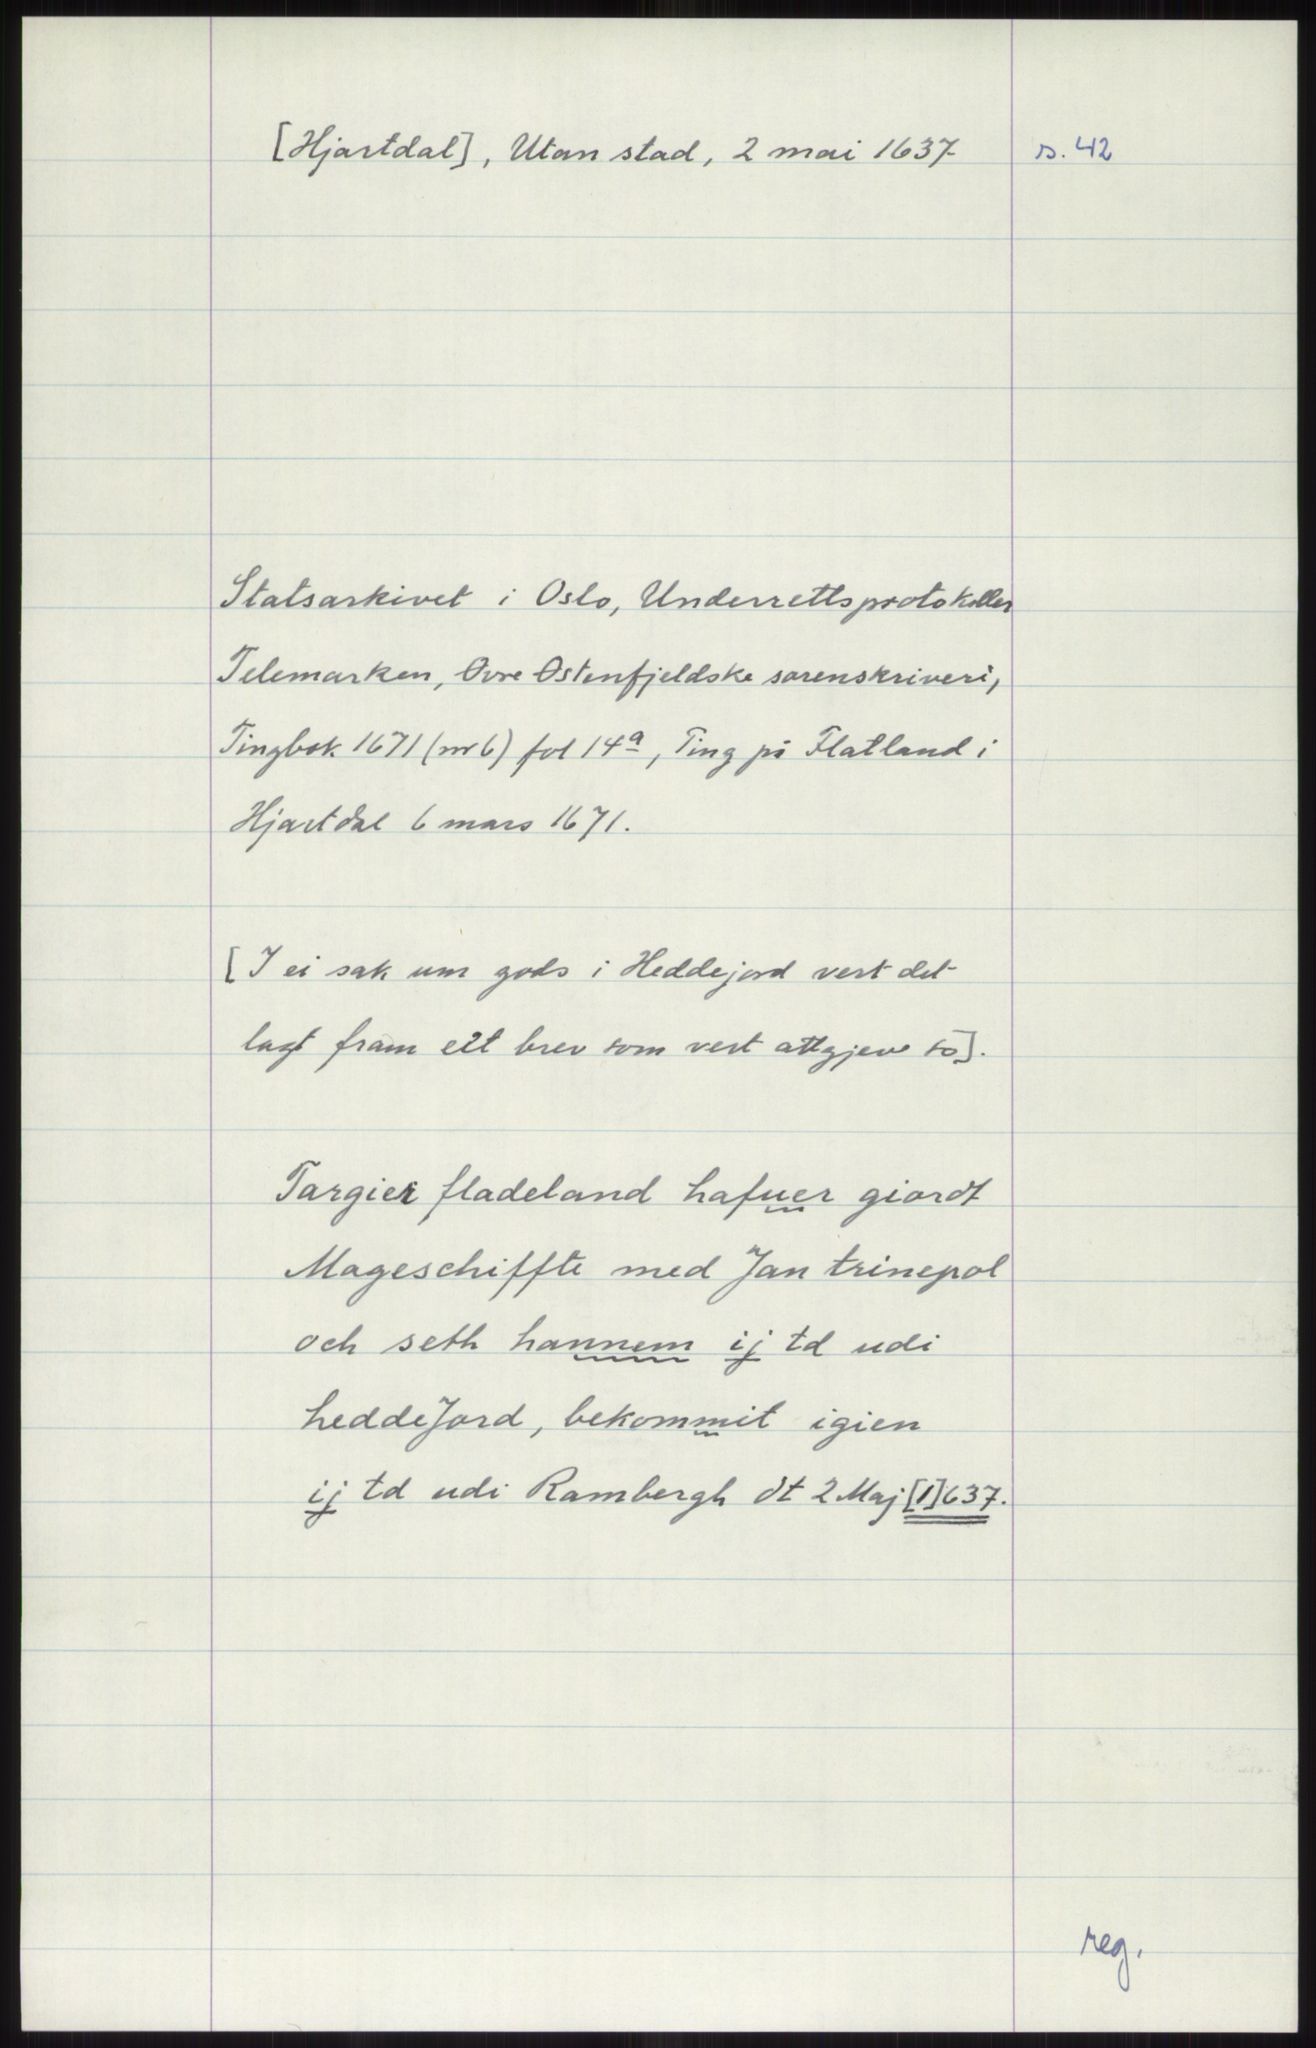 [Hjartdal], Utan stad, 2 mai 1637
s. 42
Statsarkivet i Oslo, Underrettsprotokoller
Telemarken, Øvre Østenfjeldske sorenskriveri,
Tingbok 1671 (nr 6) fol 14a, Ting på Flatland i
Hjartdal 6 mars 1671.
[I ei sak um gods i Heddejord vert det
lagt fram eit brev som vert attgjeve so].
Targier fladeland hafuer giordt
Mageschiffte med Jan trinepol
och seth hannem ij td udi
heddeJord, bekommit igien
ij td udi Rambergh dt 2 Maj [1]637.
reg.